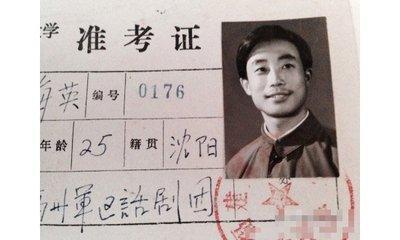 学 准考证
海英 编号 0176
年龄 25 籍贯 沈阳
州軍区話剧团